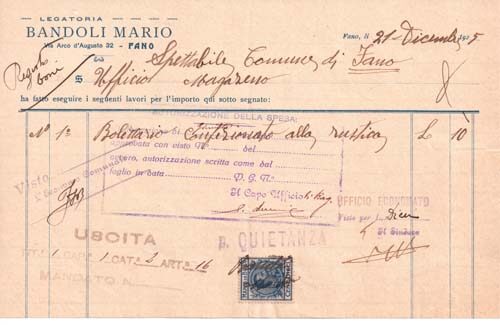 LEGATORIA
BANDOLI MARIO
Via Arco d'Augusto 32 - FANO
Fano, li 21 Dicembre 1925
Spettabile Comune di Fano
S. Ufficio Magazeno
ha fatto eseguire i seguenti lavori per l'importo qui sotto segnato:
AUTORIZZAZIONE DELLA SPESA:
N° 1° Bolettario confezionato alla rustica £ 10
approvata con visto N. del
ovvero, autorizzazione scritta come dal
foglio in data P. G. N.
Il Capo Ufficio
Visto
UFFICIO ECONOMATO
Visto per
Il Sindaco
USCITA
p. QUIETANZA
TIT. 1 CAP. 1 CAT. 2 ART. 16
MANDATO N.